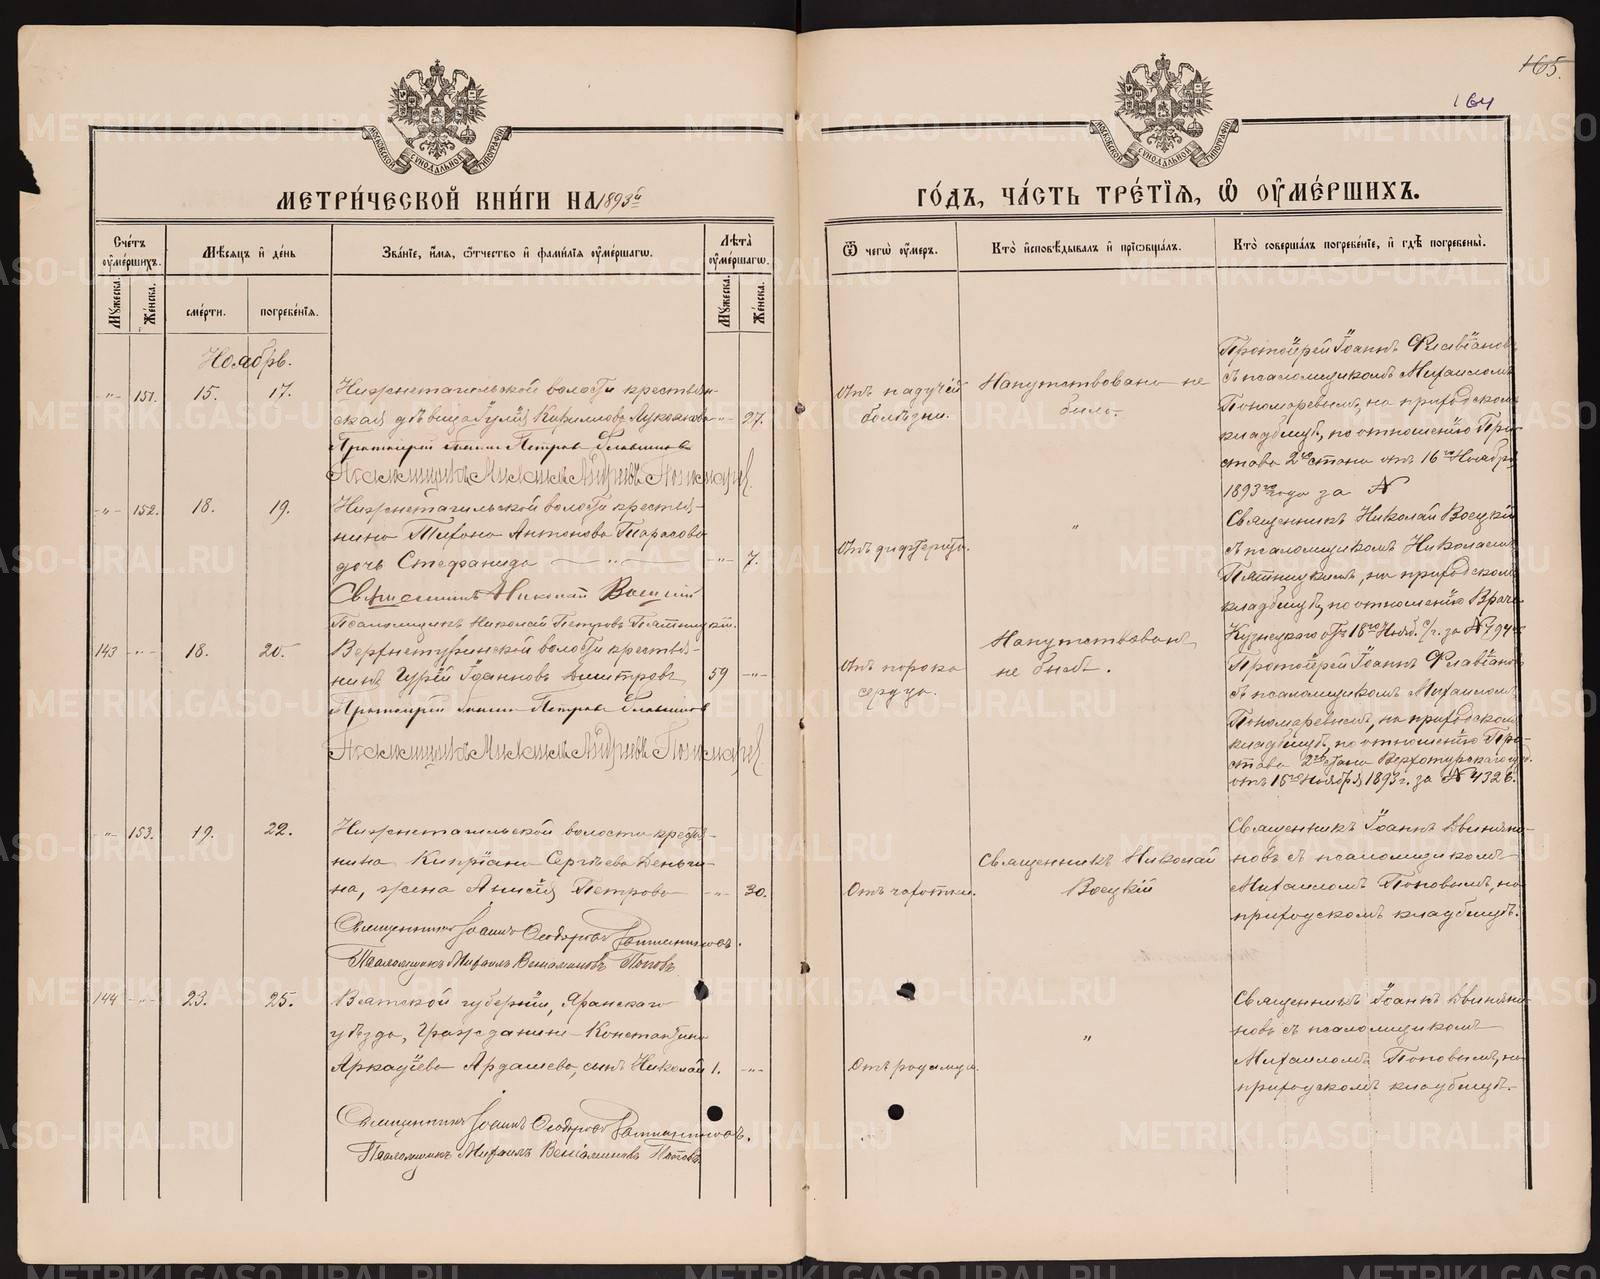 165.
164
МОСКОВСКОЙ СѴНОДАЛЬНОЙ ТИПОГРАФІИ
МОСКОВСКОЙ СѴНОДАЛЬНОЙ ТИПОГРАФІИ
МЕТРИ́ЧЕСКОЙ КНИ́ГИ НА 1893й
ГО́ДЪ, ЧА́СТЬ ТРЕ́ТІЯ, Ѽ ОУ҆МЕ́РШИХЪ.
Сче́тъ оу҆ме́ршихъ.
Мѣ́сяцъ и҆ де́нь
Зва́ніе, и҆́мя, ѻ҆́тчество и҆ фами́лія оу҆ме́ршагѡ.
Лѣ́та оу҆ме́ршагѡ.
Мꙋ́жеска.
Же́нска.
сме́рти.
погребе́нія.
Мꙋ́жеска.
Же́нска.
Ѿ чегѡ̀ оу҆́меръ.
Кто̀ и҆сповѣ́дывалъ и҆ прїѡбща́лъ.
Кто̀ соверша́лъ погребе́ніе, и҆ гдѣ̀ погребены̀.
Ноябрь.
-"- 151. 15. 17.
Нижнетагильской волости крестьян-
ская дѣвица Іулія Кирилова -"- 27.
Протоіерей Іоаннъ Петровъ Флавіановъ
Псаломщикъ Михаилъ Андреевъ Пономаревъ.
Отъ падучей
болѣзни.
Напутствована не
была.
Протоіерей Іоаннъ Флавіановъ
съ псаломщикомъ Михаиломъ
Пономаревымъ, на приходскомъ
кладбищѣ, по отношенію При-
става 2го стана отъ 16го Ноября
1893го года за №
-"- 152. 18. 19.
Нижнетагильской волости крестья-
нина Тихона Антонова Тарасова
дочь Стефанида -"- -"- 7.
Священникъ Николай Воецкій
Псаломщикъ Николай Петровъ Пятницкій.
Отъ дифтерита.
"
Священникъ Николай Воецкій
съ псаломщикомъ Николаемъ
Пятницкимъ, на приходскомъ
кладбищѣ, по отношенію Врача
Кузнецкаго отъ 18го Нояб. с/г. за №
143 -"- 18. 20.
Верхнетуринской волости крестья-
нинъ Гурій Іоанновъ Димитровъ 59 -"-
Протоіерей Іоаннъ Петровъ Флавіановъ
Псаломщикъ Михаилъ Андреевъ Пономаревъ.
Отъ порока
сердца.
Напутствованъ
не былъ.
Протоіерей Іоаннъ Флавіановъ
съ псаломщикомъ Михаиломъ
Пономаревымъ, на приходскомъ
кладбищѣ, по отношенію При-
става 2го стана Верхотурскаго уѣз.
отъ 15го Ноября 1893г. за № 4326.
-"- 153. 19. 22.
Нижнетагильской волости крестья-
нина Кипріана Сергѣева Деньги-
на, жена Анисія Петрова -"- 30.
Священникъ Іоаннъ Ѳеодоровъ
Псаломщикъ Михаилъ Веніаминовъ Поповъ.
Отъ чахотки.
Священникъ Николай
Воецкій
Священникъ Іоаннъ Двиняни-
новъ съ псаломщикомъ
Михаиломъ Поповымъ, на
приходскомъ кладбищѣ.
144 -"- 23. 25.
Вятской губерніи, Яранскаго
уѣзда, гражданина Константина
Аркадіева Ардашева, сынъ Николай 1. -"-
Священникъ Іоаннъ Ѳеодоровъ
Псаломщикъ Михаилъ Веніаминовъ Поповъ.
Отъ родимца.
"
Священникъ Іоаннъ Двиняни-
новъ съ псаломщикомъ
Михаиломъ Поповымъ, на
приходскомъ кладбищѣ.
METRIKI.GASO-URAL.RU